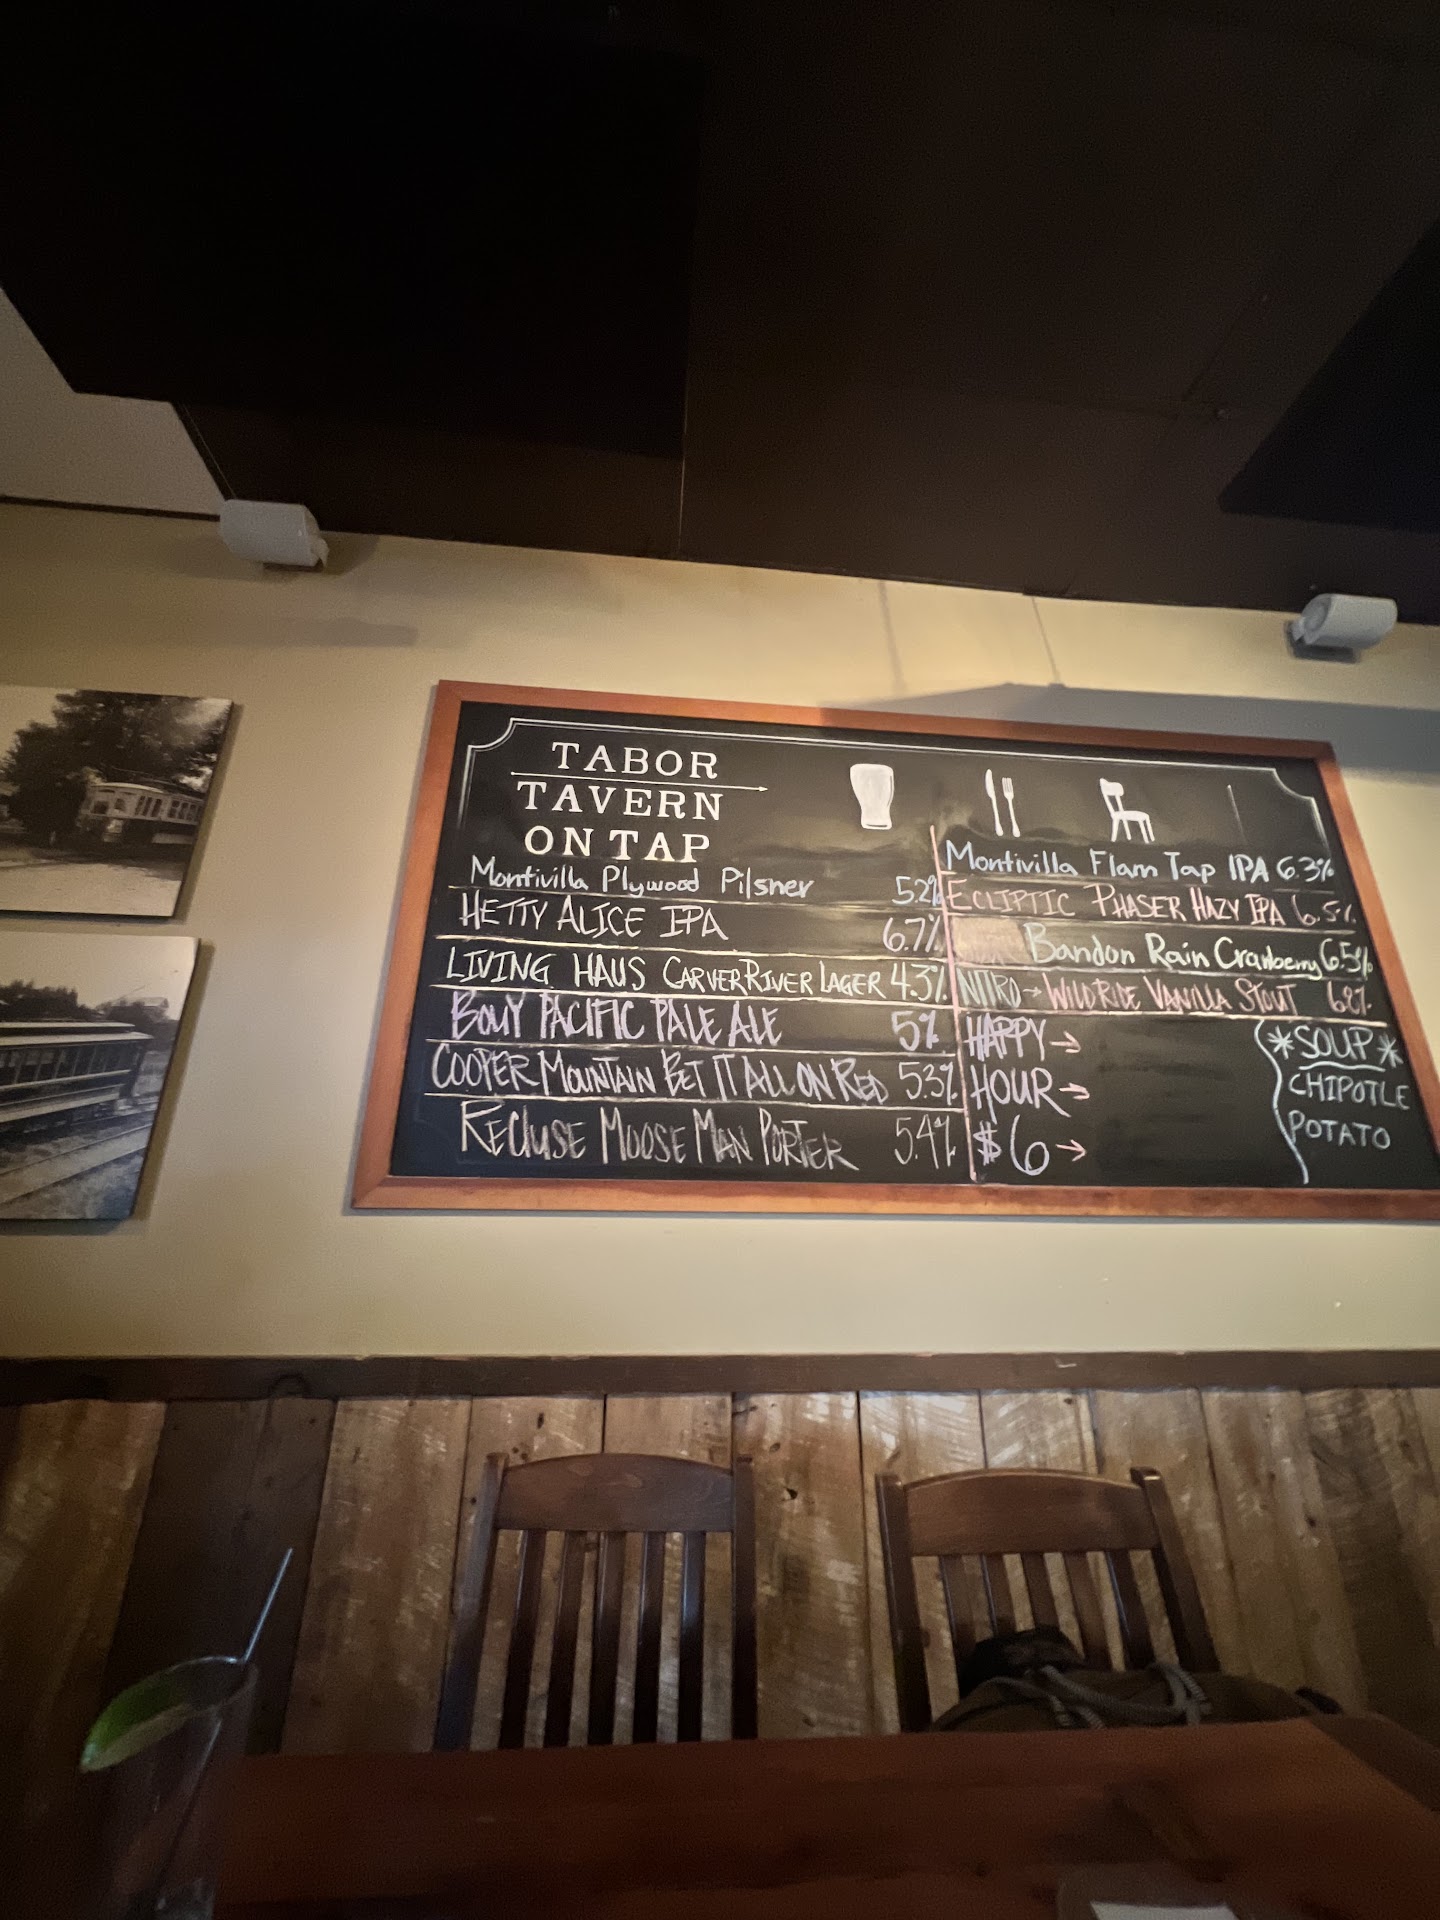 TABOR
TAVERN
ON TAP
Montivilla Plywood Pilsner 5.2%
HETTY ALICE IPA 6.7%
LIVING HAUS CARVER RIVER LAGER 4.3%
BOUY PACIFIC PALE ALE 5%
COOPER MOUNTAIN BET IT ALL ON RED 5.3%
RECLUSE MOOSE MAN PORTER 5.4%
Montivilla Flam Tap IPA 6.3%
ECLIPTIC PHASER HAZY IPA 6.5%
Bandon Rain Cranberry 6.5%
NITRO → WILD RIDE VANILLA STOUT 6.8%
HAPPY →
HOUR →
$6 →
*SOUP*
CHIPOTLE
POTATO